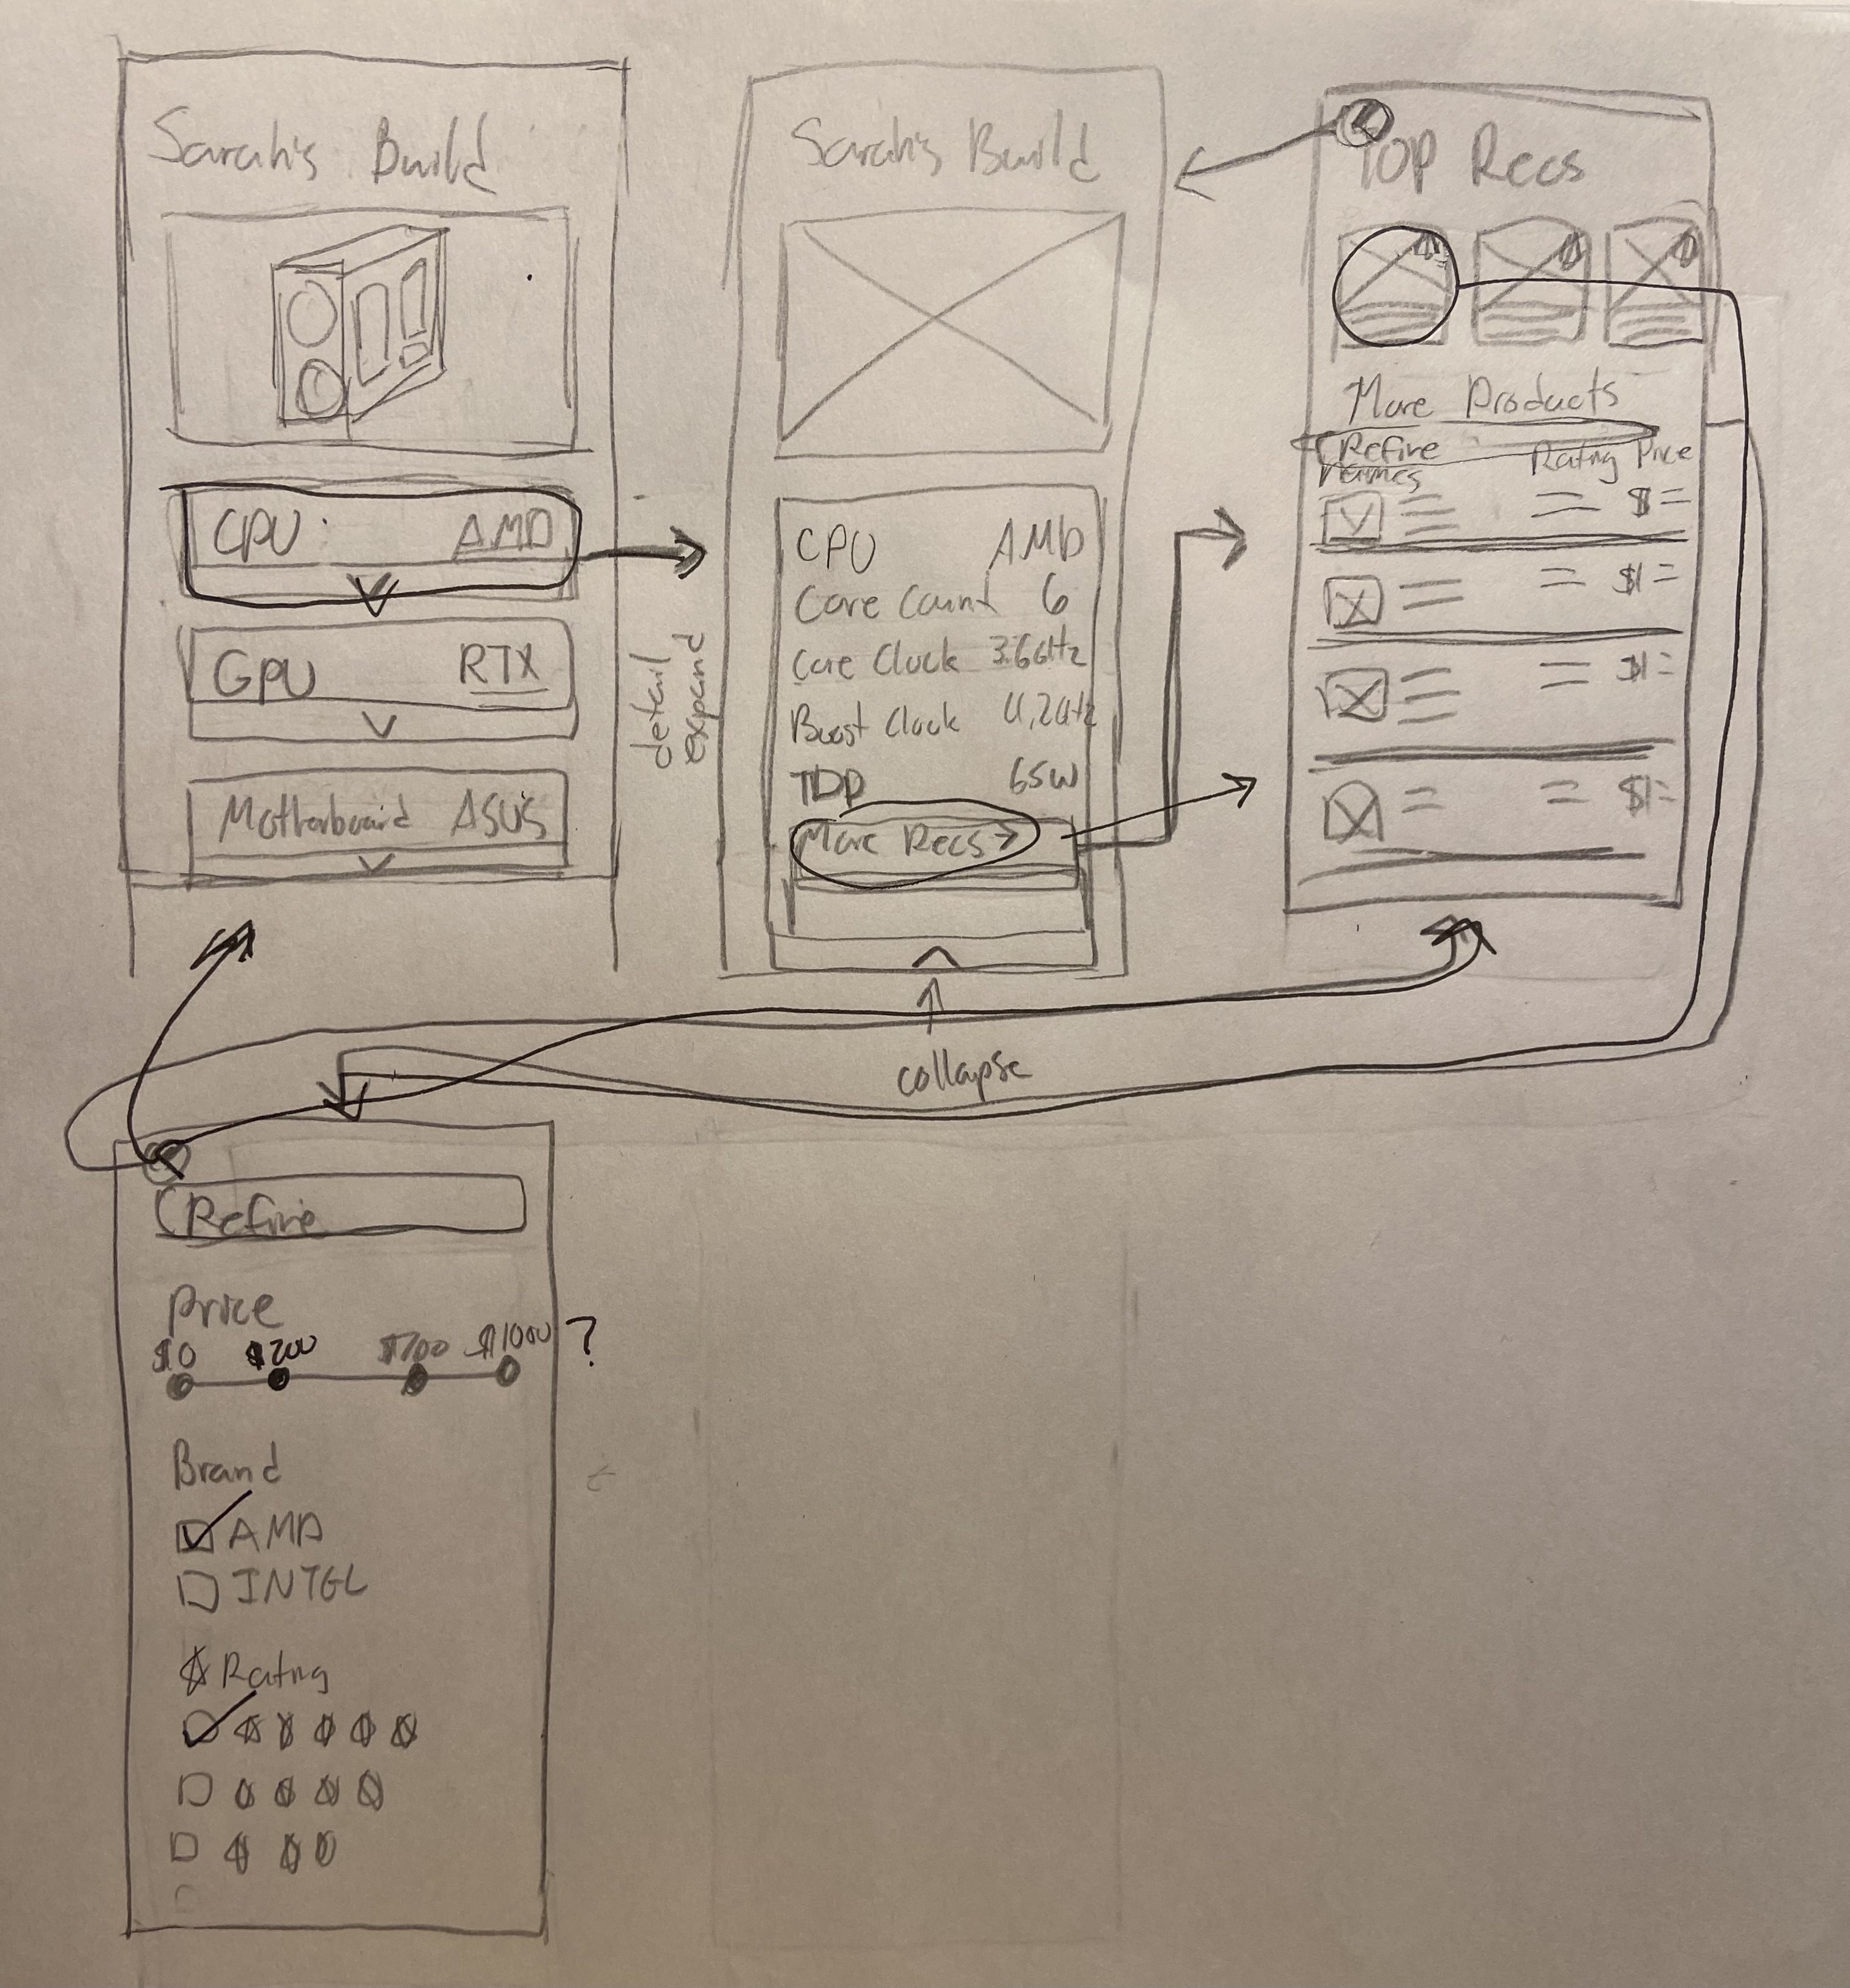 Sarah's Build
CPU: AMD
GPU RTX
Motherboard ASUS
detail
expand
Sarah's Build
CPU AMD
Core Count 6
Core Clock 3.6GHz
Boost Clock 4.2GHz
TDP 65W
More Recs →
collapse
Top Recs
More Products
Refine
Names Rating Price
$
$
$
$
Refine
Price
$0 $200 $700 $1000 ?
Brand
AMD
INTEL
Rating